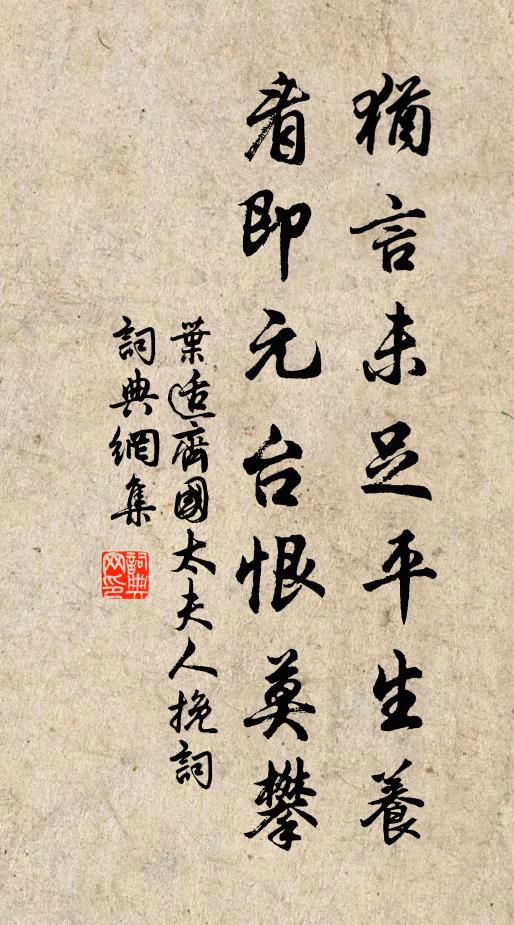 猶言未足平生養
看即元台恨莫攀
葉适齊國太夫人挽詞
詞典網集
詞典网印